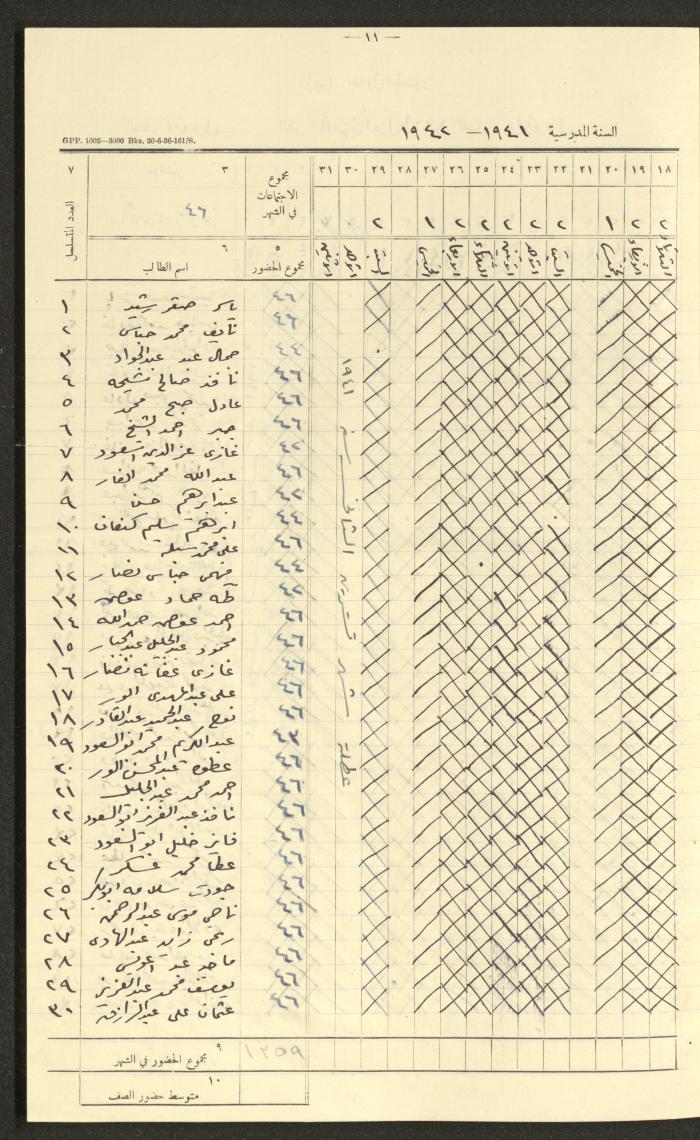 — ١١ —
السنة المدرسية ١٩٤١ - ١٩٤٢
GPP. 1002—3000 Bks. 20-6-36-161/S.
١٨ ١٩ ٢٠ ٢١ ٢٢ ٢٣ ٢٤ ٢٥ ٢٦ ٢٧ ٢٨ ٢٩ ٣٠ ٣١ مجموع الاجتماعات في الشهر ٣ ٧
٢ ٢ ١ ٢ ٢ ٢ ٢ ٢ ١ ٢ ٤٦
الثلاثاء الاربعاء الخميس السبت الاحد الاثنين الثلاثاء الاربعاء الخميس السبت الاحد الاثنين
٥ مجموع الحضور ٦ اسم الطالب العدد المتسلسل
٤٦ ياسر صقر ١
٤٦ نايف محمد عباس ٢
٤٤ جمال عبد عبدالجواد ٣
٤٦ نافذ صالح ٤
٤٦ عادل صبح محمد ٥
٤٦ جبر احمد الشيخ ٦
٤٢ غازي عز الدين ٧
٤٦ عبدالله محمد الفار ٨
٤٢ عبد ابرهيم حسن ٩
٤٤ ابرهيم سليم كنعان ١٠
٤٦ علي محمد ١١
٤٤ فهمي عباس نصار ١٢
٤٢ طه حماد عوض ١٣
٤٦ احمد عوض حمدالله ١٤
٤٦ محمود عبدالجليل عبدالجبار ١٥
٤٦ غازي نصار ١٦
٤٦ علي عبدالمهدي ١٧
٤٦ نوح عبدالحميد عبدالقادر ١٨
٤٣ عبدالكريم محمد ابو السعود ١٩
٤٦ عطوه عبدالمحسن ٢٠
٤٦ احمد محمد عبدالجليل ٢١
٤٦ نافذ عبدالعزيز ابو السعود ٢٢
٤٦ فايز خليل ابو السعود ٢٣
٤٦ عطا محمد عسكر ٢٤
٤٦ جودت سلامه ابوبكر ٢٥
٤٦ ناجي موسى عبدالرحمن ٢٦
٤٦ زايد عبدالهادي ٢٧
٤٦ ماجد عبد ٢٨
٤٦ يوسف محمد عبدالعزيز ٢٩
٤٦ عثمان علي عبدالرازق ٣٠
عطلة شهر تشرين الثاني سنة ١٩٤١
٩ مجموع الحضور في الشهر ١٣٥٩
١٠ متوسط حضور الصف